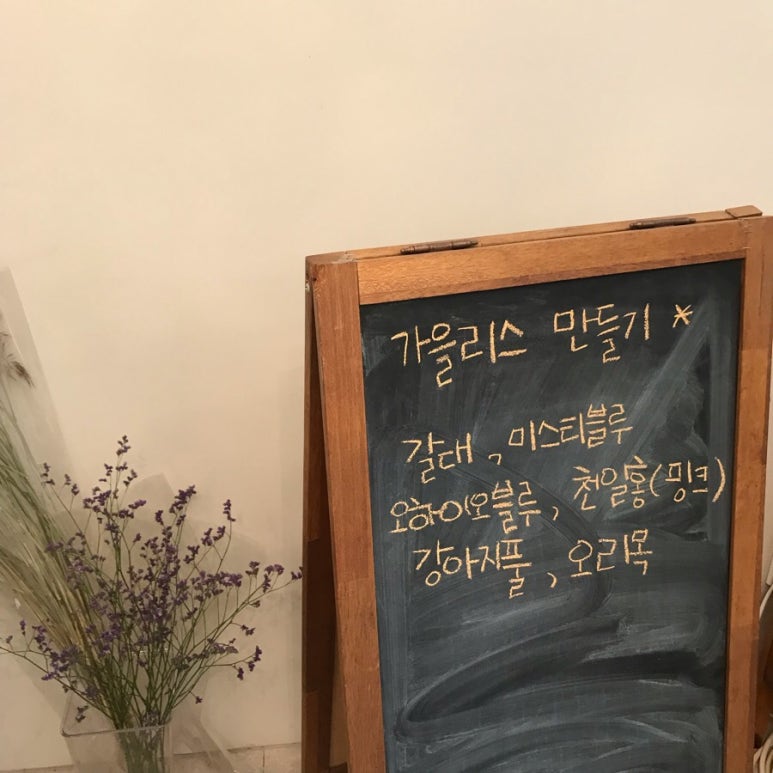 가을리스 만들기 *
갈대, 미스티블루
오하이오블루, 천일홍(핑크)
강아지풀, 오리목